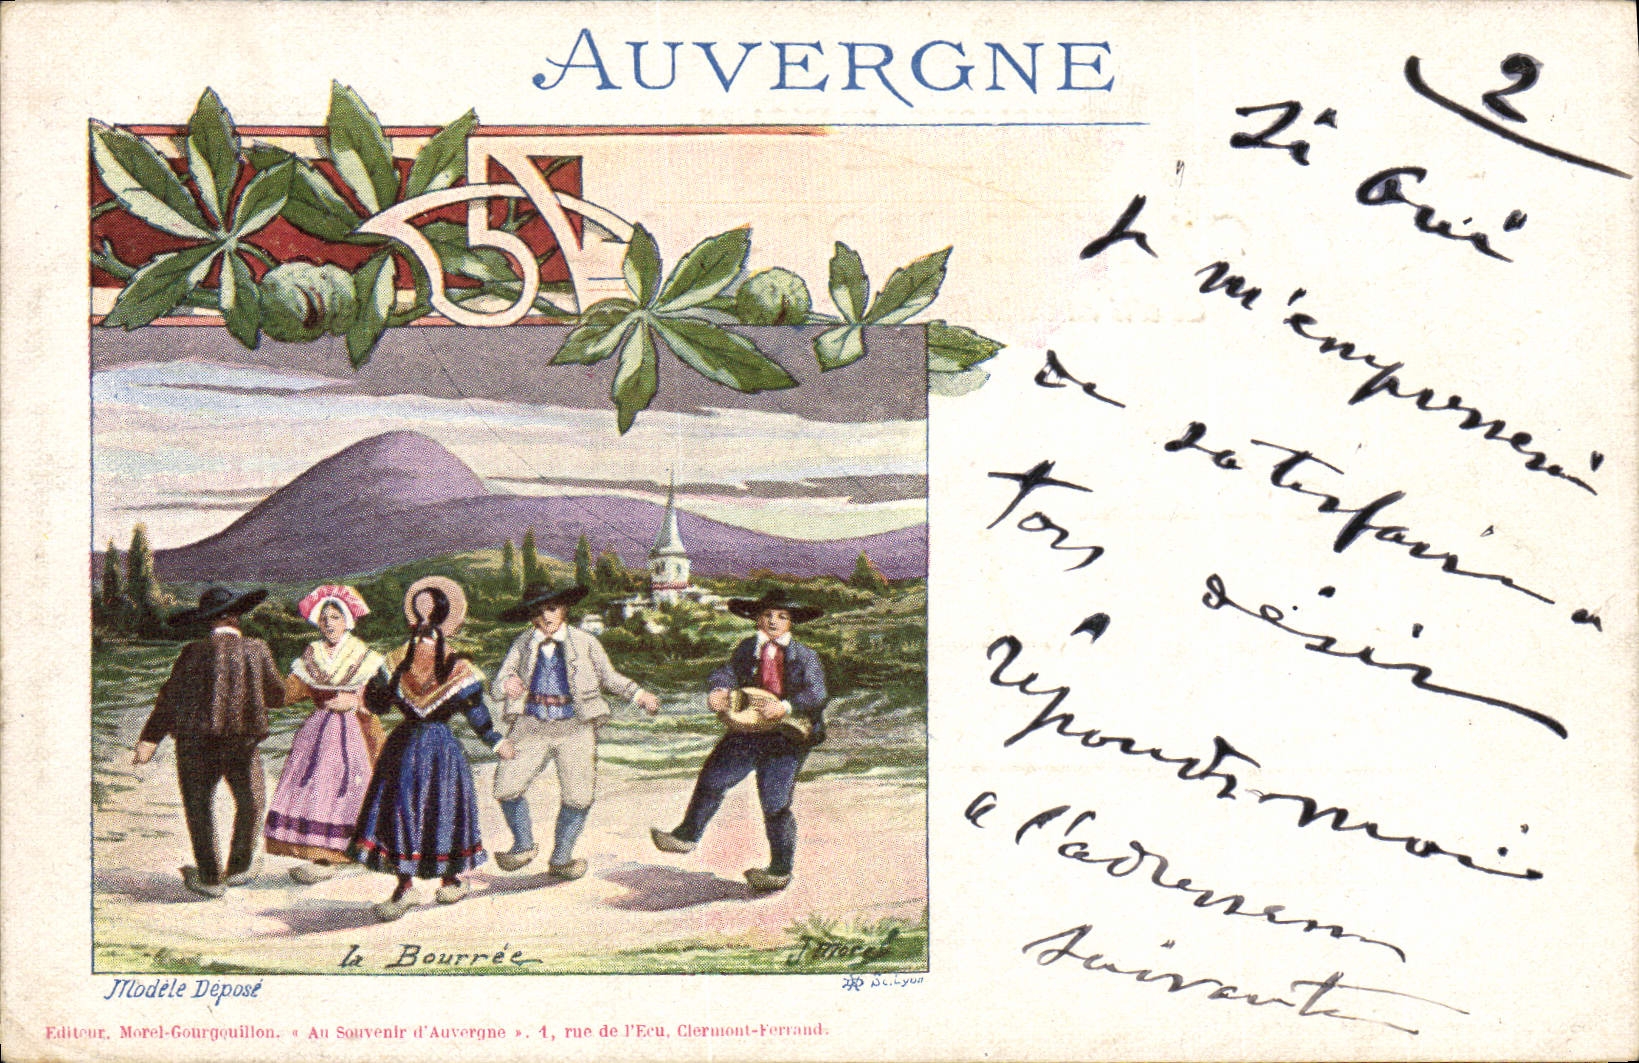 AUVERGNE
2
Si Oui
Je m'empresserai
de satisfaire a
ton désir
réponds-moi
a l'adresse
suivante
la Bourrée
Modèle Déposé
Sc. Lyon
Editeur, Morel-Gourgouillon. « Au Souvenir d'Auvergne ». 1, rue de l'Ecu, Clermont-Ferrand.